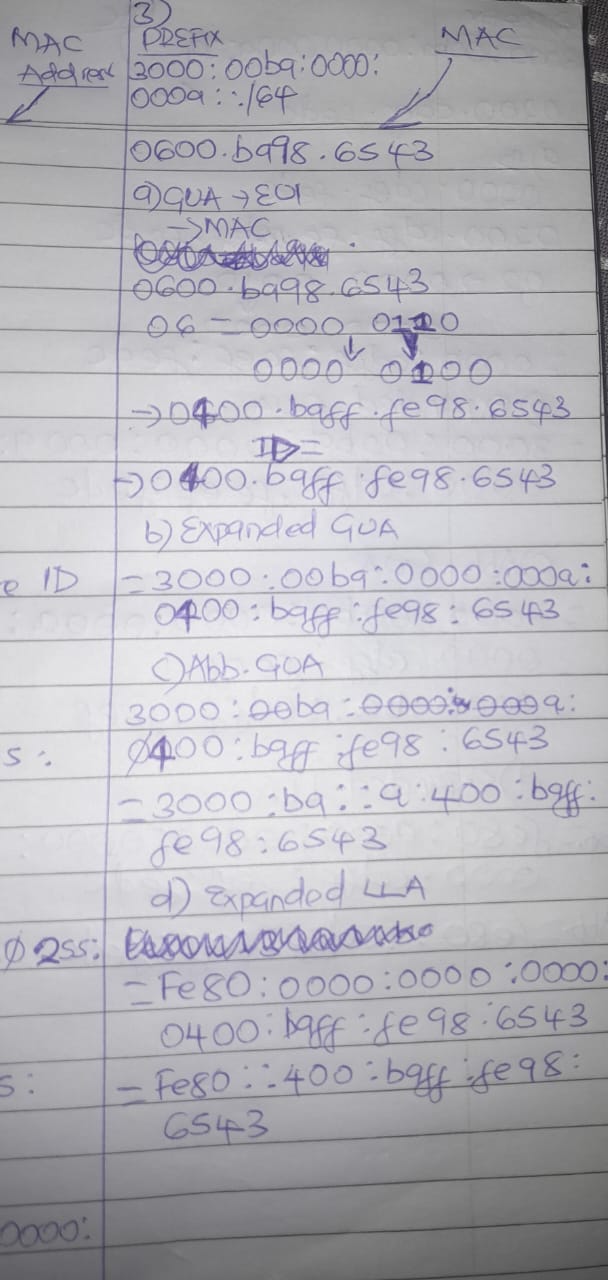 3)
MAC
Address
PREFIX
3000:00ba:0000:
000a::/64
MAC
0600.ba98.6543
a) GUA → EUI
→ MAC
0600.ba98.6543
06 = 0000 0110
0000 0100
→ 0400.baff.fe98.6543
ID =
→ 0400.baff.fe98.6543
b) Expanded GUA
e ID
= 3000:00ba:0000:000a:
0400:baff:fe98:6543
c) Abb. GUA
3000:00ba:0000:000a:
s:
0400:baff:fe98:6543
= 3000:ba::a:400:baff:
fe98:6543
d) Expanded LLA
= Fe80:0000:0000:0000:
0400:baff:fe98:6543
s:
= Fe80::400:baff:fe98:
6543
0000: